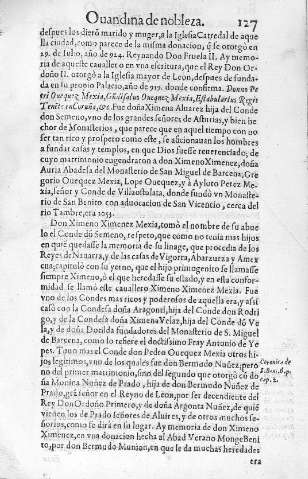 Ouandina de nobleza. 127
despues los dieró marido y muger, a la Iglesia Catredal de aque
lla ciudad, como parece de la misma donacion, q̃ se otorgó en
29. de Iulio, año de 924. Reynando Don Fruela II. Ay memo
ria de aqueste cauallero en vna escritura, que el Rey Don Or-
doño II. otorgó a la Iglesia mayor de Leon, despues de funda-
da en su propio Palacio, año de 919. donde confirma.
Fue doña Ximena Aluarez hija del Conde
don Semeno, vno de los grandes señores de Asturias, y bien he
chor de Monasterios, que parece que en aquel tiempo con no
ser tan rico y prospero como este, se aficionauan los hombres
a fundar casas y templos, en que Dios fuesse reuerenciado; de
cuyo matrimonio engendraron a don Ximeno Ximenez, doña
Auria Abadesa del Monasterio de San Miguel de Barcena, Gre
gorio Ouequez Mexia, Lope Ouequez, y a Ayloto Perez Me-
xia, señor y Conde de donde fundó vn Monaste-
rio de San Benito con aduocacion de San Vicentio, cerca del
rio Tambre, era 1053.
Don Ximeno Ximenez Mexia, tomó el nombre de su abue
lo el Conde dó Semeno, respeto, que como no tenia mas hijos
en quié quedasse la memoria de su linage, que procedia de los
Reyes de Nauarra, y de las casas de Vigorra, Abarzuza y Amez
cua; capituló con su yerno, que el hijo primogenito se llamasse
siempre Ximeno, ó el que heredasse su estado, y en esta confor-
midad se llamó este cauallero Ximeno Ximenez Mexia. Fue
vno de los Condes mas ricos y poderosos de aquella era, y assi
casó con la Condesa doña Aragonti, hija del Conde don Rodri
go, y de la Condesa doña Ximena Velaz, hija del Conde dó Ve
la, y de doña Docilda fundadores del Monasterio de S. Miguel
de Barcena, como lo refiere el doctissimo Fray Antonio de Ye-
pes. Tuuo mas el Conde don Pedro Ouequez Mexia otros hi-
jos legitimos, vno de los quales fue don Bermudo Nuñez; pero
no del primer matrimonio, sino del segundo que otorgó có do
ña Monica Nuñez de Prado, hija de don Bermudo Nuñez de
Prado, grá señor en el Reyno de Leon, por ser decendiente del
Rey Don Ordoño Primero, y de doña Argonta Nuñez, de quié
vienen los de Prado señores de Aluires, y de otros muchos se-
ñorios, como se dirá en su lugar. Ay memoria de don Ximeno
Ximenez, en vna donacion hecha al Abad Verano Monge Beni
to, por don Bermudo Munian, en que le da muchas heredades
era
Coronica de
S. Beni.
cap. 2.